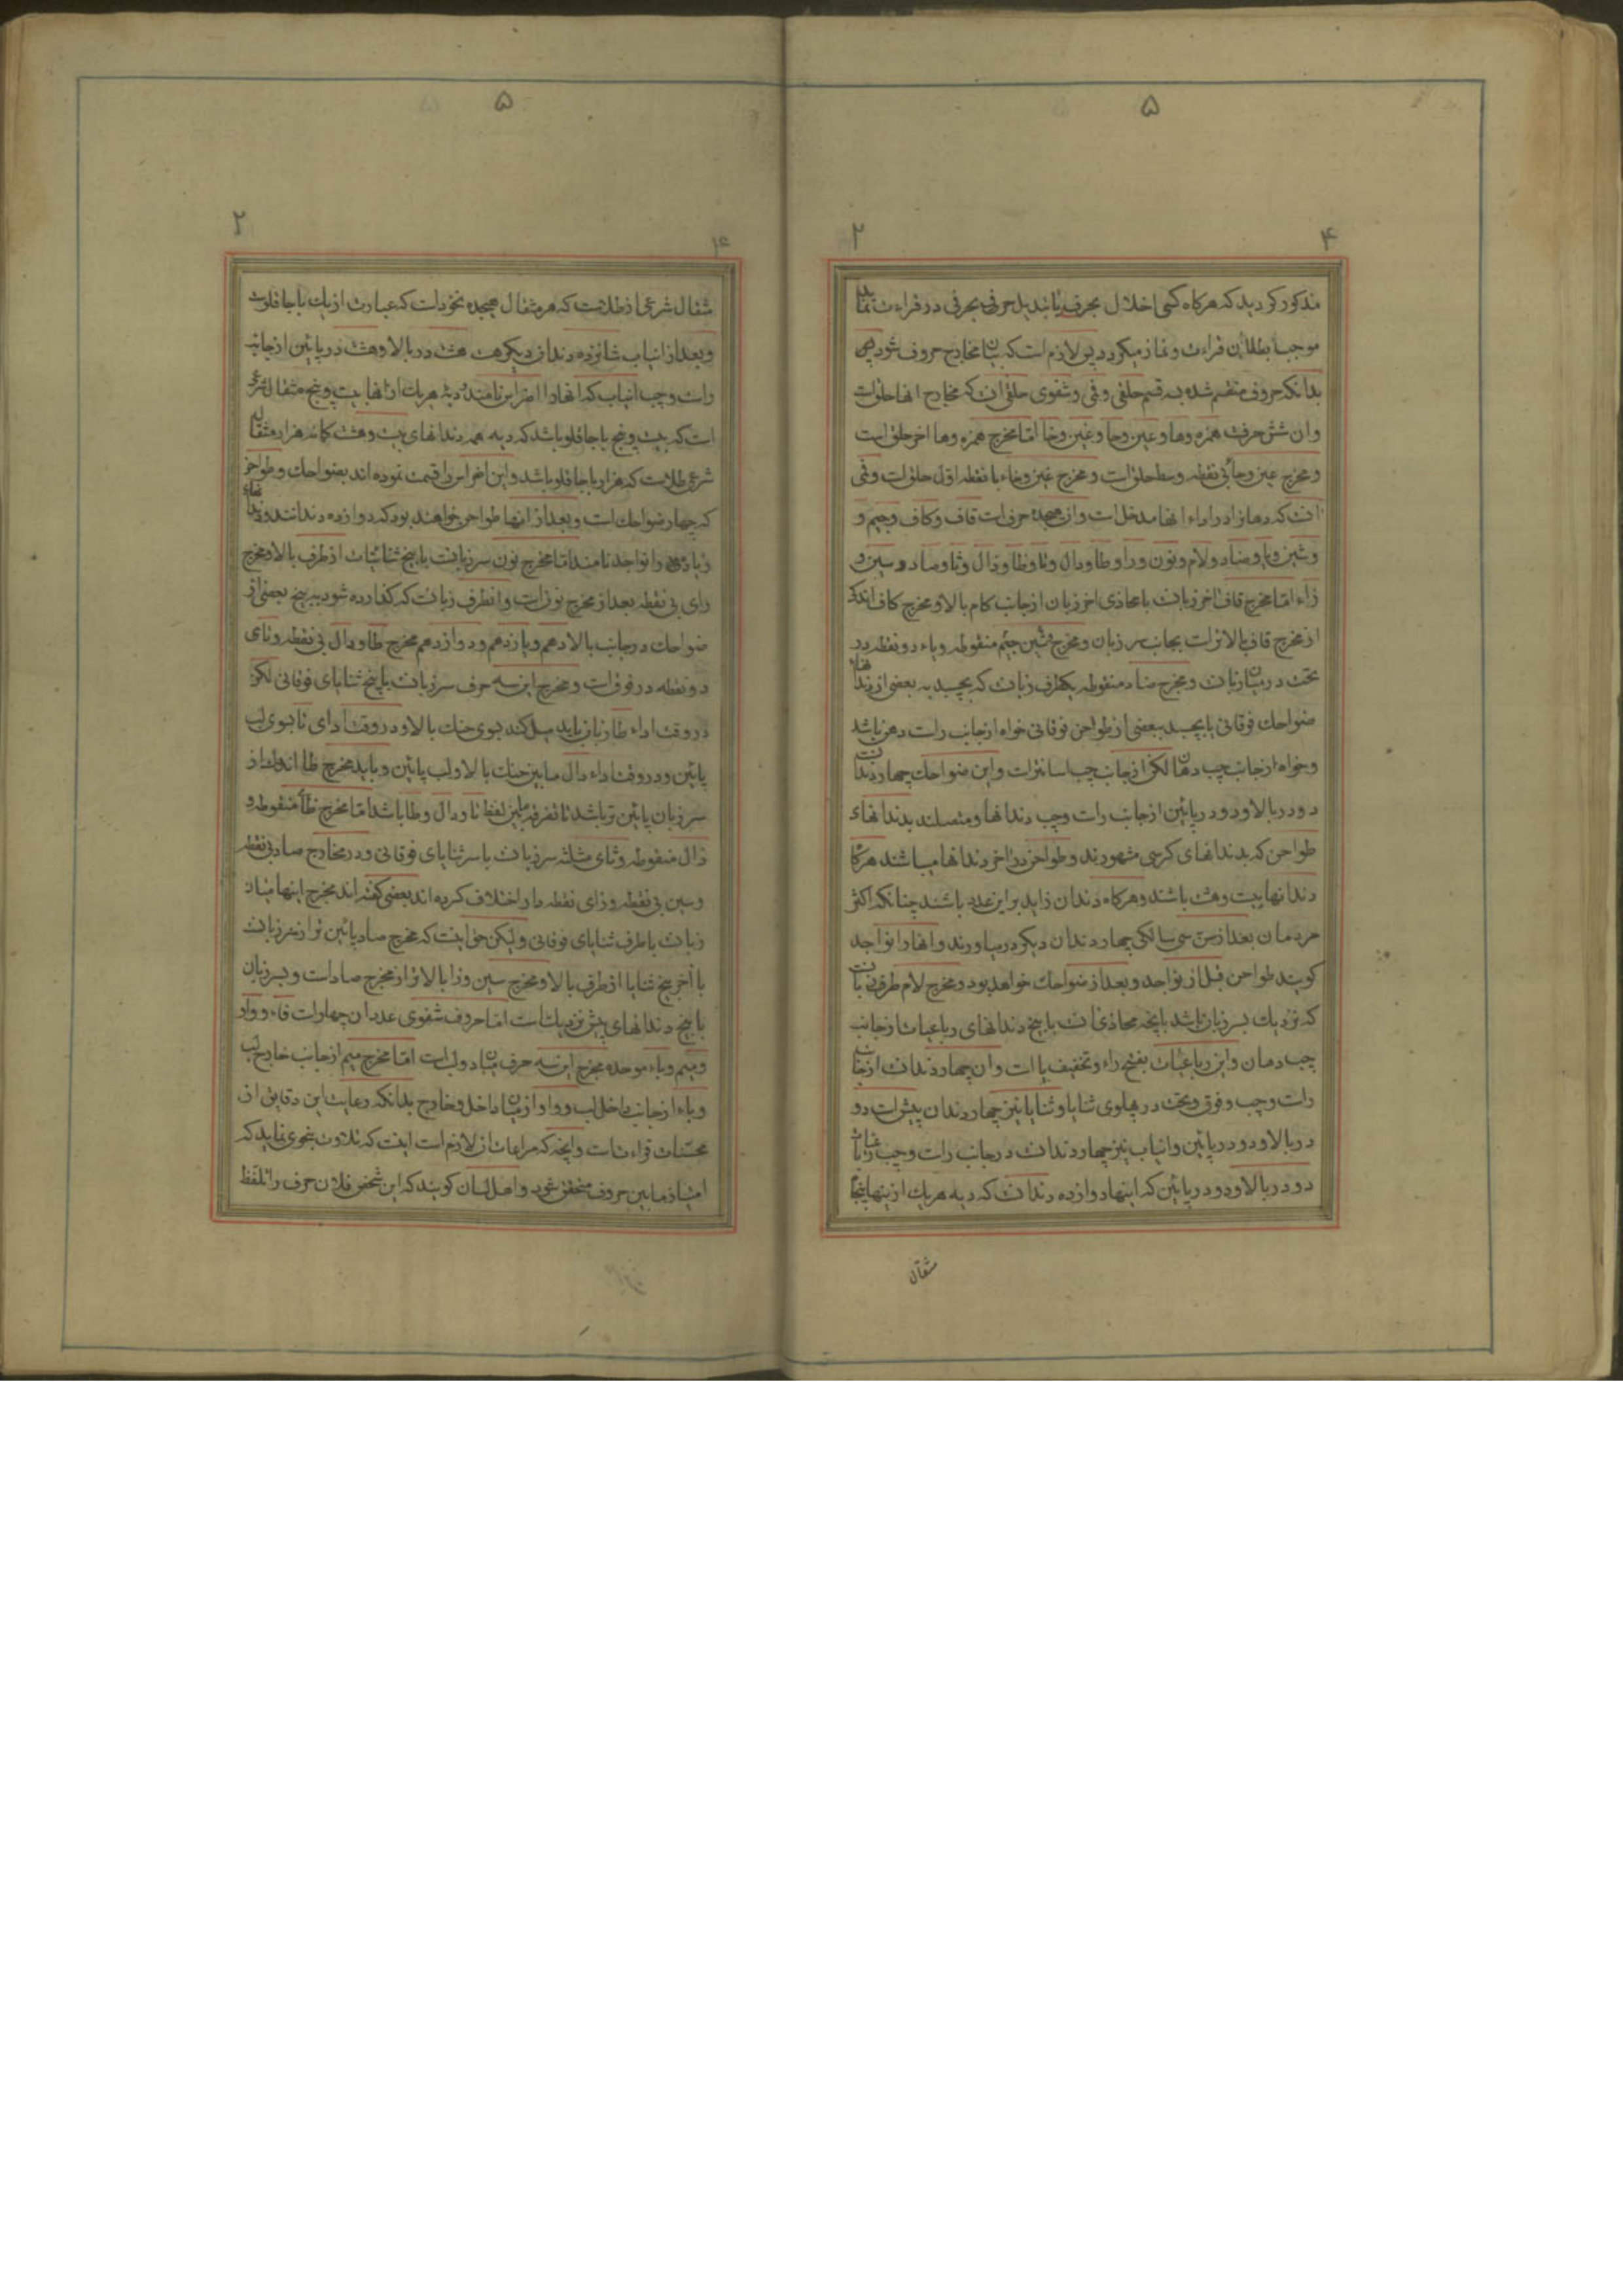 ۵
۲ ۴
مذکور کردید که هرکاه کسی اخلال بحرفی یا تبدیل حرفی بحرفی در قراءت نماید
موجب بطلان قراءت و نماز میکردد پس لازم است که بیان مخارج حروف شود پس
بدانکه حروف منقسم شده بسه قسم حلقی و فمی و شفوی حلقی آن که مخارج انها حلق است
و ان شش حرفست همزه و ها و عین و حا و غین و خا امّا مخرج همزه و ها اخر حلق است
و مخرج عین و حاء بی نقطه وسط حلق است و مخرج غین و خاء با نقطه اوّل حلق است و فمی
انست که دهانرا در اداء انها مدخل است و ان هیجده حرف است قاف و کاف و جیم و
و شین و یا و ضاد و لام و نون و را و طا و دال و تا و ظا و ذال و ثا و صاد و سین و
زاء امّا مخرج قاف اخر زبانست با محاذی اخر زبان از جانب کام بالا و مخرج کاف اندک
از مخرج قاف بالاتر است بجانب سر زبان و مخرج شین جیم منقوطه و یاء دو نقطه در
تحت در میان زبانست و مخرج ضاد منقوطه یکطرف زبانست که بچسبد به بعضی از دندانهای
ضواحک فوقانی یا بچسبد ببعضی از طواحن فوقانی خواه از جانب راست دهن باشد
و خواه از جانب چپ دهان لکن از جانب چپ اسانتر است و این ضواحک چهار دندانست
دو در بالا و دو در پائین از جانب راست و چپ دندانها و متصلند بدندانهای
طواحن که بدندانهای کرسی مشهورند و طواحن در اخر دندانها میباشند هرکاه
دندانها بیست و هشت باشند و هرکاه دندان زاید بر این عدد باشند چنانکه اکثر
مردمان بعد از سن سی سالکی چهار دندان دیکر درمیاورند و انها را نواجد
کویند طواحن قبل از نواجد و بعد از ضواحک خواهد بود و مخرج لام طرف زبانست
که نزدیک بسر زبان باشد باانچه محاذی انست با بیخ دندانهای رباعیات از جانب
چپ دهان و این رباعیات بفتح راء و تخفیف یا است و ان چهار دندانست از جانب
راست و چپ و فوق و تحت در پهلوی ثنایا و ثنایا نیز چهار دندان پیش است دو
در بالا و دو در پائین و انیاب نیز چهار دندانست در جانب راست و چپ رباعیات
دو در بالا و دو در پائین که اینها دوازده دندانست که دیه هر یک از ینها پنجاه
مثقال
۵
۲
مثقال شرعی از طلاست که هر مثقال هیجده نخود است که عبارت از یک باجاقلوست
و بعد از انیاب شانزده دندان دیکر هست هشت در بالا و هشت در پائین از جانب
راست و چپ انیاب که انها را اضراس نامند و دیه هر یک از انها بیست و پنج مثقال شرعی
است که بیست و پنج باجاقلو باشد که دیه همه دندانهای بیست و هشت کانه هزار مثقال
شرعی طلاست که هزار باجاقلو باشد و این اضراس را قسمت نموده اند بضواحک و طواحن
که چهار ضواحک است و بعد از انها طواحن خواهند بود که دوازده دندانند و دندانهای
زیادی را نواجد نامند امّا مخرج نون سر زبانست با بیخ ثنائیات از طرف بالا و مخرج
رای بی نقطه بعد از مخرج نون است و ان طرف زبانست که کذارده شود به بیخ بعضی از
ضواحک در جانب بالا دهم و یازدهم و دوازدهم مخرج طا و دال بی نقطه و تای
دو نقطه در فوق است و مخرج این سه حرف سر زبانست با بیخ ثنایای فوقانی لکن
در وقت اداء طا زبان باید میل کند بسوی حنک بالا و در وقت ادای تا بسوی لب
پائین و در وقت اداء دال مابین حنک بالا و لب پائین و باید مخرج طا اندک از
سر زبان پائین تر باشد تا تفرقه مابین لفظ تا و دال و طا باشد امّا مخرج ظاء منقوطه و
ذال منقوطه و ثای مثلثه سر زبانست با سر ثنایای فوقانی و در مخارج صاد بی نقطه
و سین بی نقطه و زای نقطه دار اختلاف کرده اند بعضی کفته اند مخرج اینها میان
زبانست با طرف ثنایای فوقانی و لیکن حق اینست که مخرج صاد پائین تر از سر زبانست
با آخر بیخ ثنایا از طرف بالا و مخرج سین و زا بالاتر از مخرج صاد است و بسر زبان
با بیخ دندانهای پیش نزدیک تر است امّا حروف شفوی عدد ان چهار است فاء و واو
و میم و باء موحده مخرج این سه حرف میان دو لب است امّا مخرج میم از جانب خارج لب
و باء از جانب داخل لب و واو از میان داخل و خارج بدانکه رعایت این دقایق از
محسنات قراءت است و انچه که مراعات ان لازم است اینست که تلاوت بنحوی نماید که
امتیاز مابین حروف متحقق شود و اهل لسان کویند که این شخص فلان حرف را تلفظ